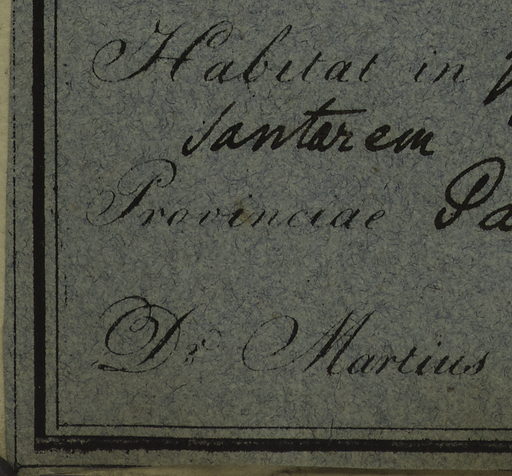 Habitat in
Santarem
Provinciae Pa
Dr. Martius